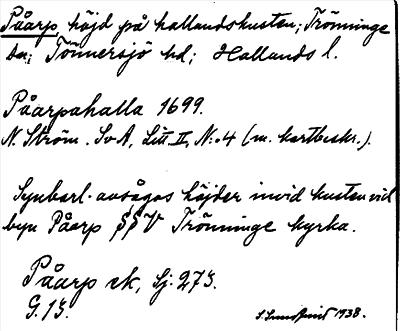 Påarp höjd på hallandskusten; Trönninge
sn; Tönnersjö hd; Hallands l.
Påarpahalla 1699.
N. Ström. SvA, Litt. II, N:o 4 (m. kartbeskr.).
Synbarl. avsågos höjder invid kusten vid
byn Påarp SSV Trönninge kyrka.
Påarp ek, Sj. 273.
G. 13.
1938.